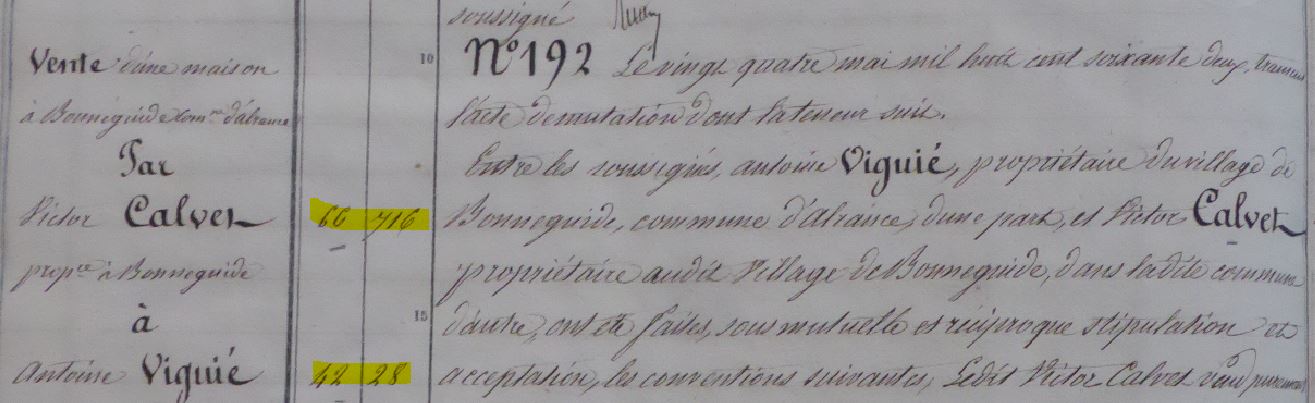 soussigné
Vente d'une maison
10 N° 192 Le vingt quatre mai mil huit cent soixante deux,
à Bonneguide Com.ne d'alrance
l'acte de mutation dont la teneur suit.
Par
Entre les soussignés, antoine Viguié, propriétaire du village de
Victor Calvet 66 716 Bonneguide, commune d'alrance, d'une part, et Victor Calvet
prop.re à Bonneguide
propriétaire audit Village de Bonneguide, dans ladite commune
à
15 d'autre, ont été faites, sous mutuelle et réciproque stipulation et
Antoine Viguié 42 28 acceptation, les conventions suivantes, Ledit Victor Calvet vend purement